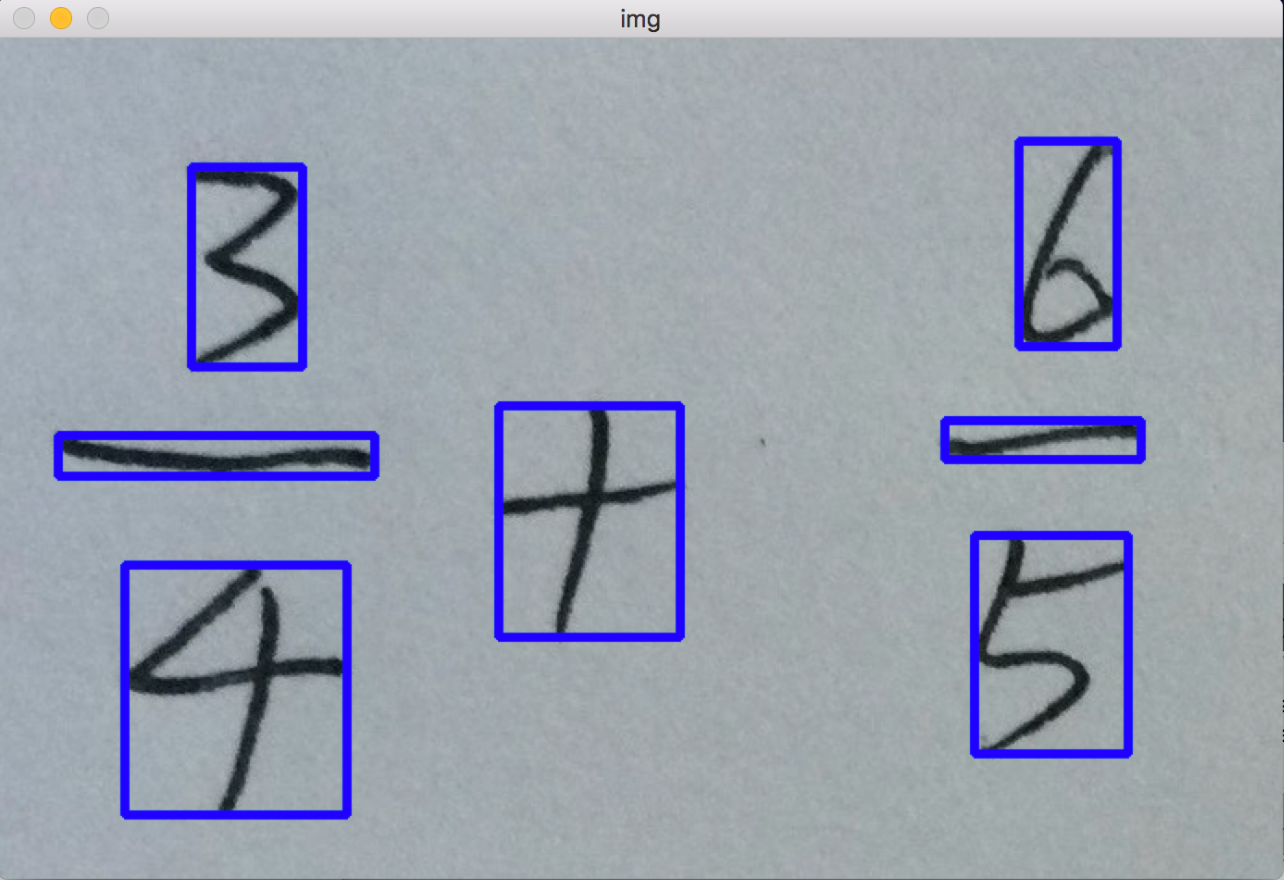 img
3/4 + 6/5